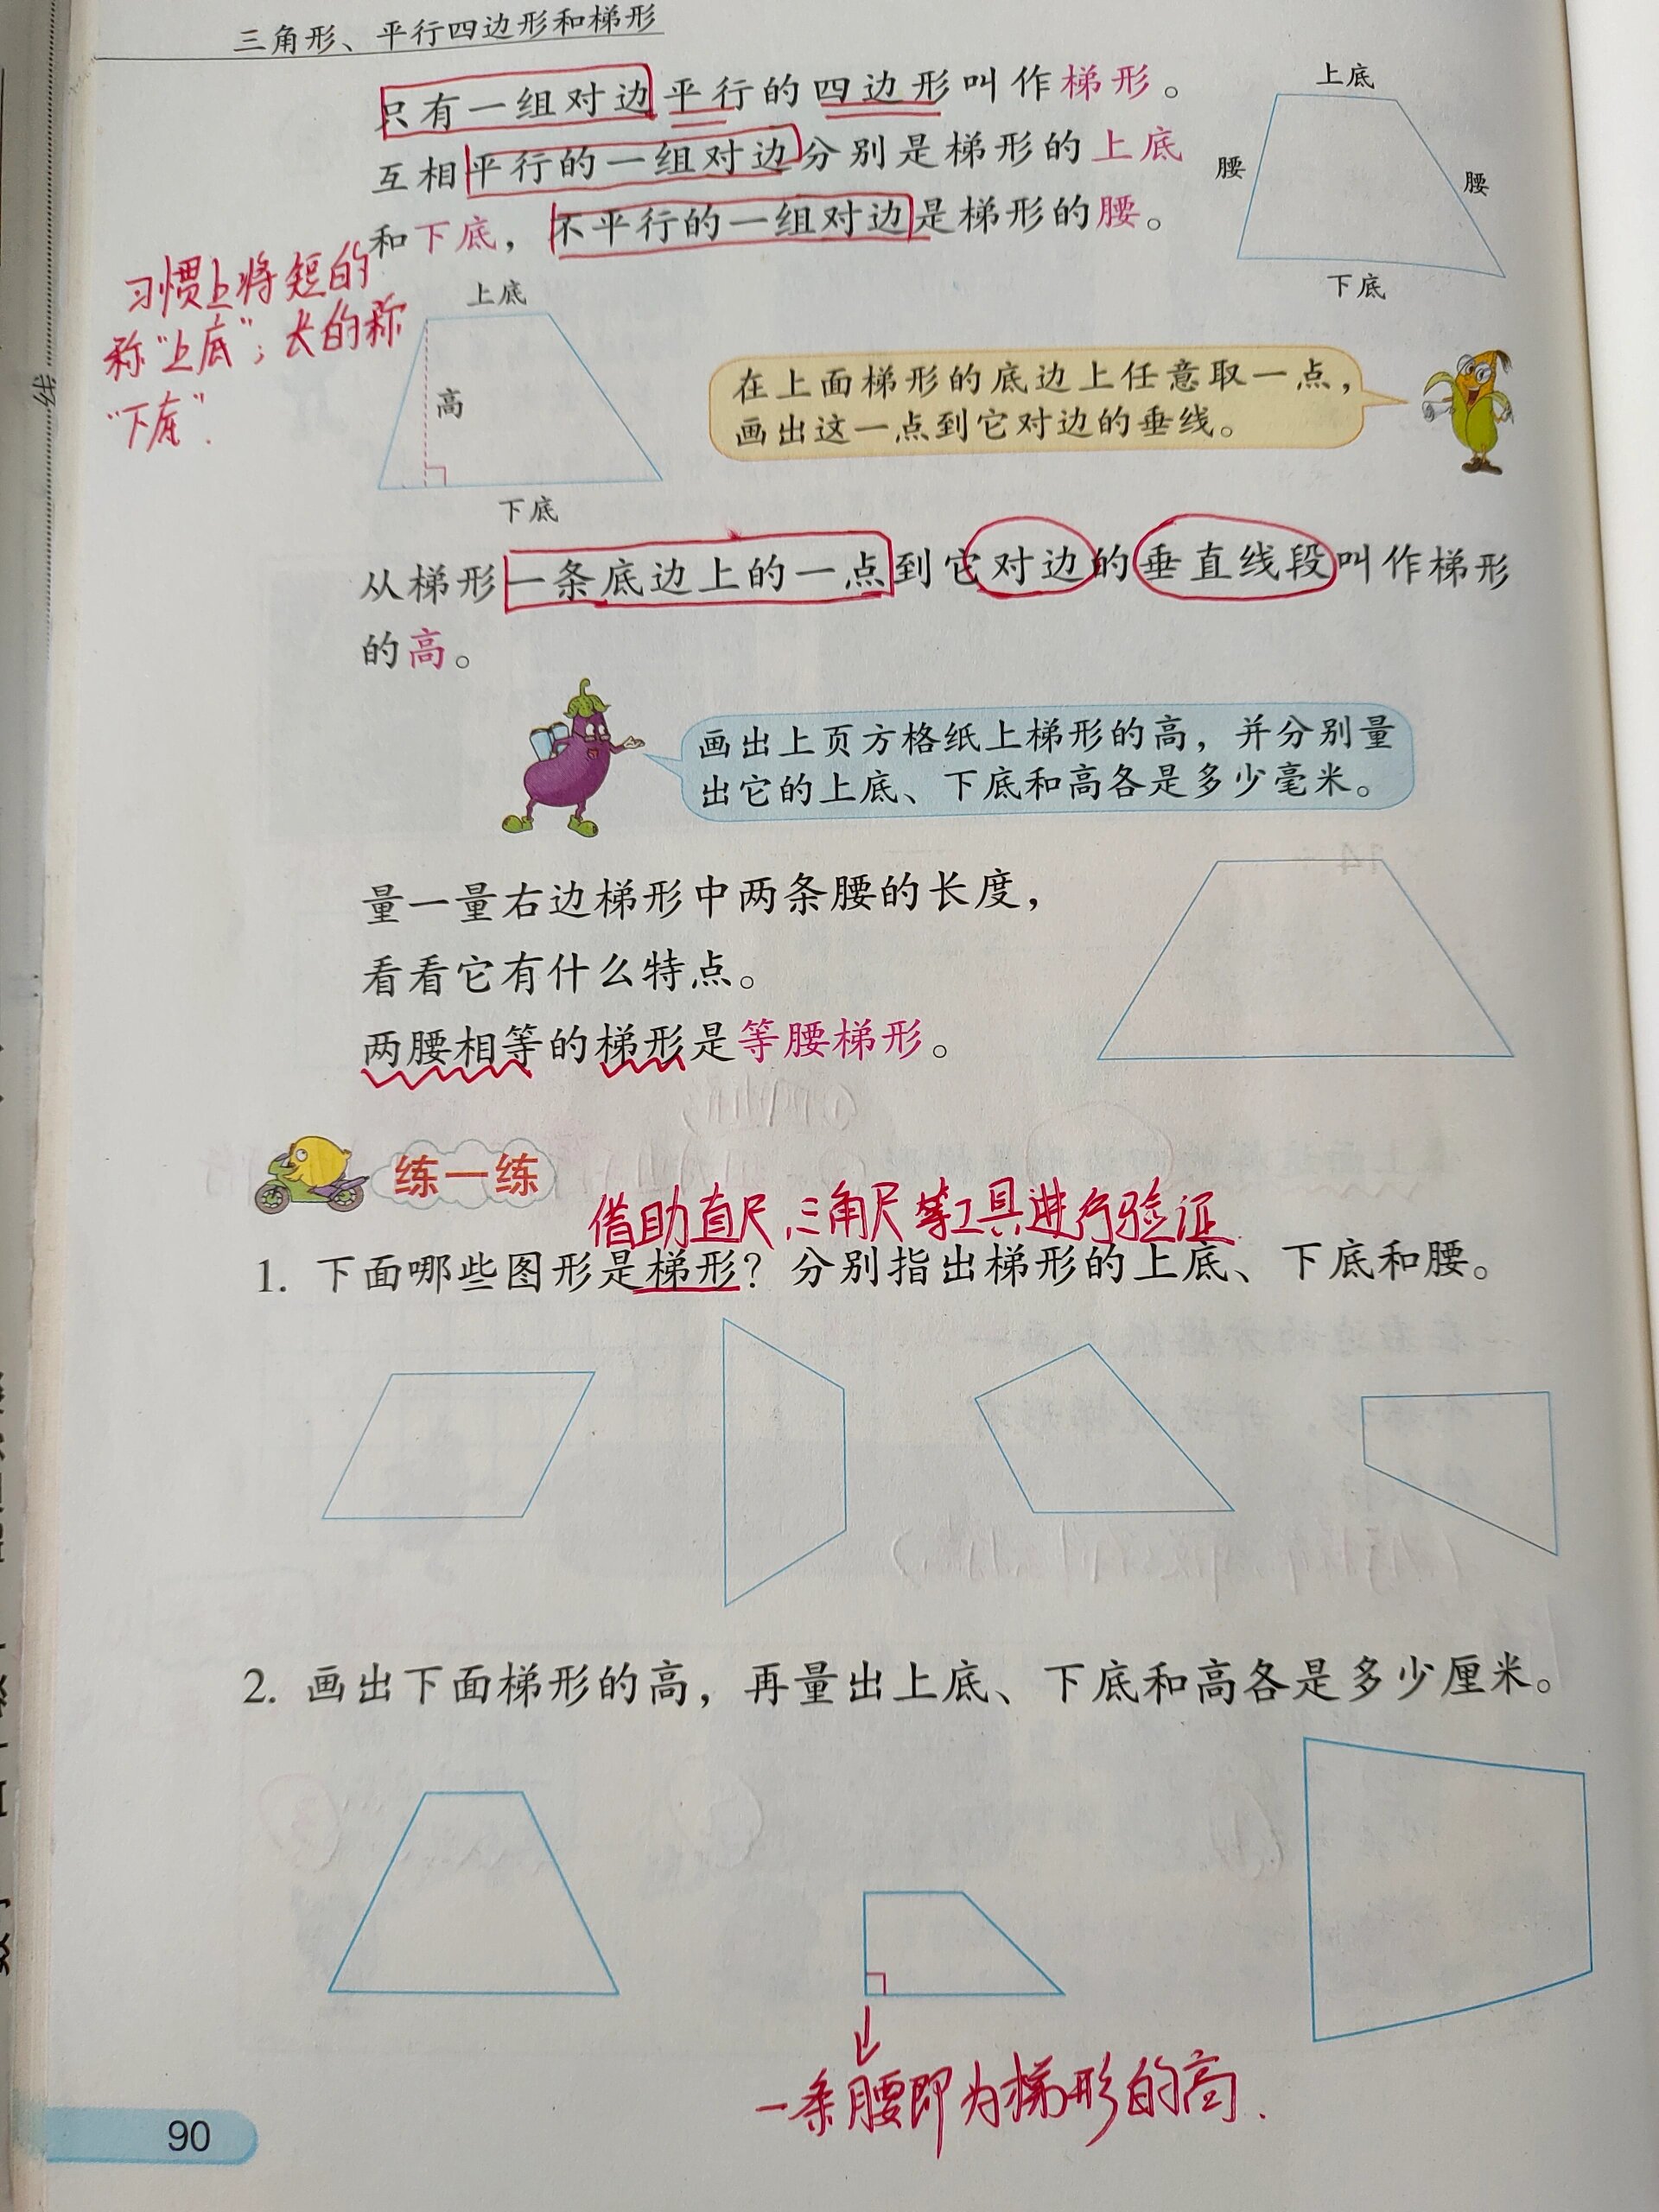 三角形、平行四边形和梯形
只有一组对边平行的四边形叫作梯形。
互相平行的一组对边分别是梯形的上底
和下底，不平行的一组对边是梯形的腰。
上底
腰
腰
下底
习惯上将短的
称“上底”；长的称
“下底”.
上底
高
下底
在上面梯形的底边上任意取一点，
画出这一点到它对边的垂线。
从梯形一条底边上的一点到它对边的垂直线段叫作梯形
的高。
画出上页方格纸上梯形的高，并分别量
出它的上底、下底和高各是多少毫米。
量一量右边梯形中两条腰的长度，
看看它有什么特点。
两腰相等的梯形是等腰梯形。
练一练
借助直尺、三角尺等工具进行验证.
1. 下面哪些图形是梯形？分别指出梯形的上底、下底和腰。
2. 画出下面梯形的高，再量出上底、下底和高各是多少厘米。
一条腰即为梯形的高.
90